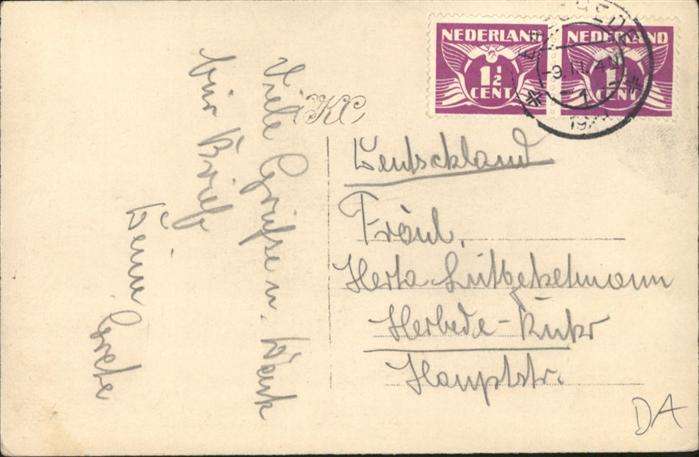 NEDERLAND
1½
CENT
NEDERLAND
1½
CENT
Viele Grüsse u. Dank
für Brief
Deine Grete
KC
Deutschland
Fräul.
Herta
Herbede-Ruhr
Hauptstr.
DA